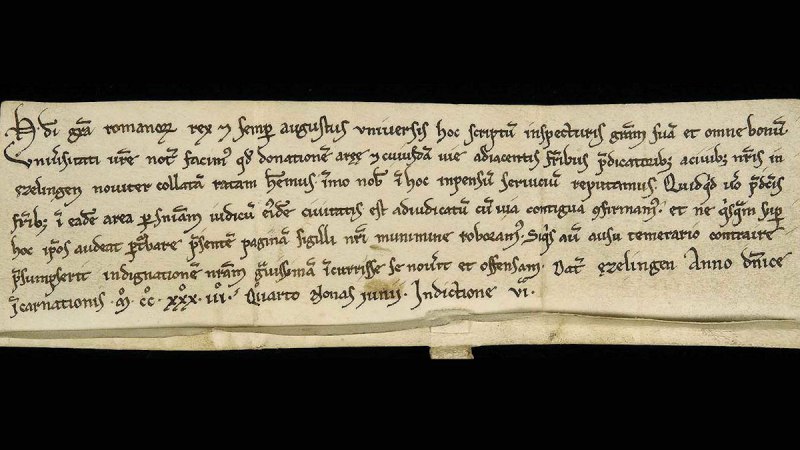 H. di gr̄a romanoꝝ rex ⁊ semp̄ augustus vniuersis hoc scriptū inspecturis gr̄am suā et omne bonū
Vniu̓sitati vr̄e notū̄ facim᷒ qd̓ donationē areę ⁊ cuiusdā vie adiacentis fr̄ibus p̄dicatoribꝫ a ciuibꝫ nr̄is in
ezelingen nouiter collatā ratam habem᷒. īmo nob̄ ī hoc inpensū seruiciū reputamus. Quidqd̓ u̓o p̄dc̄is
fr̄ibꝫ ī eadē area ꝑ sn̄iam iudicū eiꝰdē ciuitatis est adiudicatū cū uia contigua ꝯfirmam᷒. et ne qⁱsq̄m sup̄
hoc ip̄os audeat ꝑt᷒bare p̄sentē paginā sigilli nr̄i munimine roboram᷒. Siqⁱs aūt ausu temerario contraire
p̄sumpserit indignationē nr̄am gᵃuissimā īcurrisse se nou̓it et offensam. Dat̄ ezelingen Anno dn̄ice
īcarnationis. M̊. CC̊. XXX. IIĬ. Quarto Nonas iunii. Indictione vi.